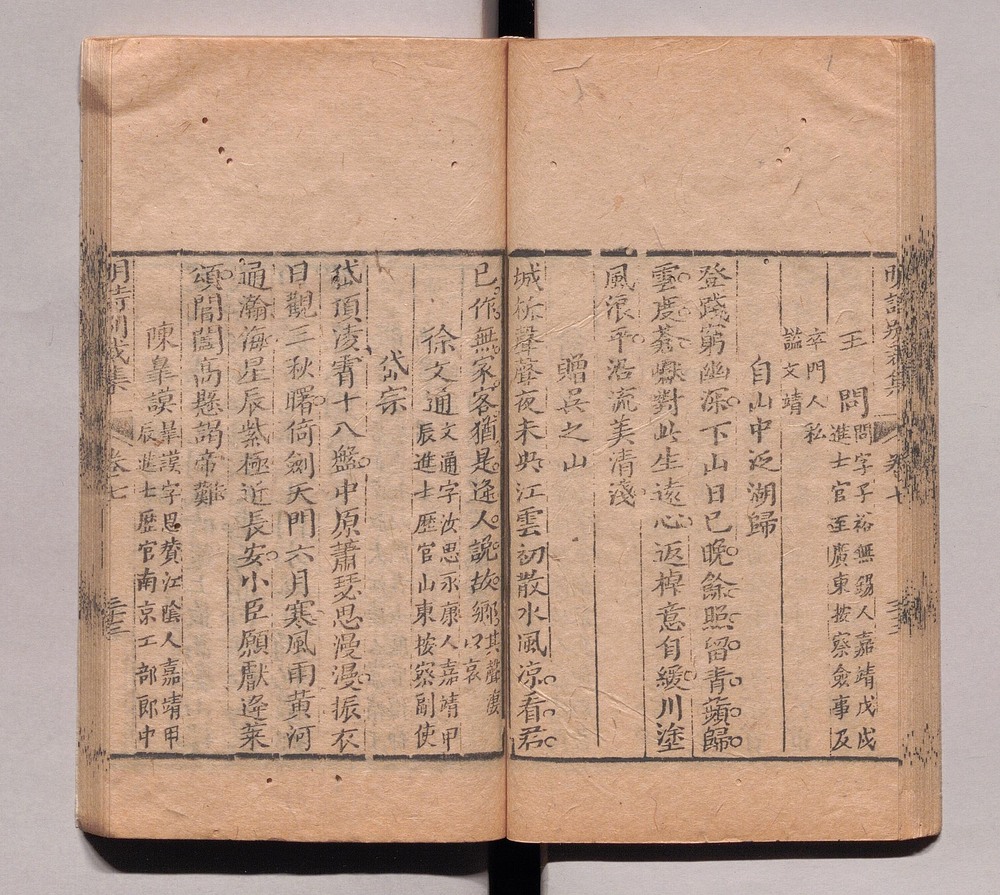 明詩別裁集 卷七
王問問字子裕無錫人嘉靖戊戌
進士官至廣東按察僉事及
卒門人私
謚文靖
自山中泛湖歸
登踐窮幽深下山日已晚餘照留青蘋歸
雲度蒼巘對此生遠心返棹意自緩川塗
風浪平沿流美清淺
贈吳之山
城柝聲聲夜未央江雲初散水風凉看君
已作無家客猶是逢人說故鄉其聲淒
以哀
徐文通文通字汝思永康人嘉靖甲
辰進士歷官山東按察副使
岱宗
岱頂淩霄十八盤中原蕭瑟思漫漫振衣
日觀三秋曙倚劍天門六月寒風雨黃河
通瀚海星辰紫極近長安小臣願獻逢萊
頌閶闔高懸謁帝難
陳臯謨臯謨字思贊江陰人嘉靖甲
辰進士歷官南京工部郎中
明詩別裁集 卷七